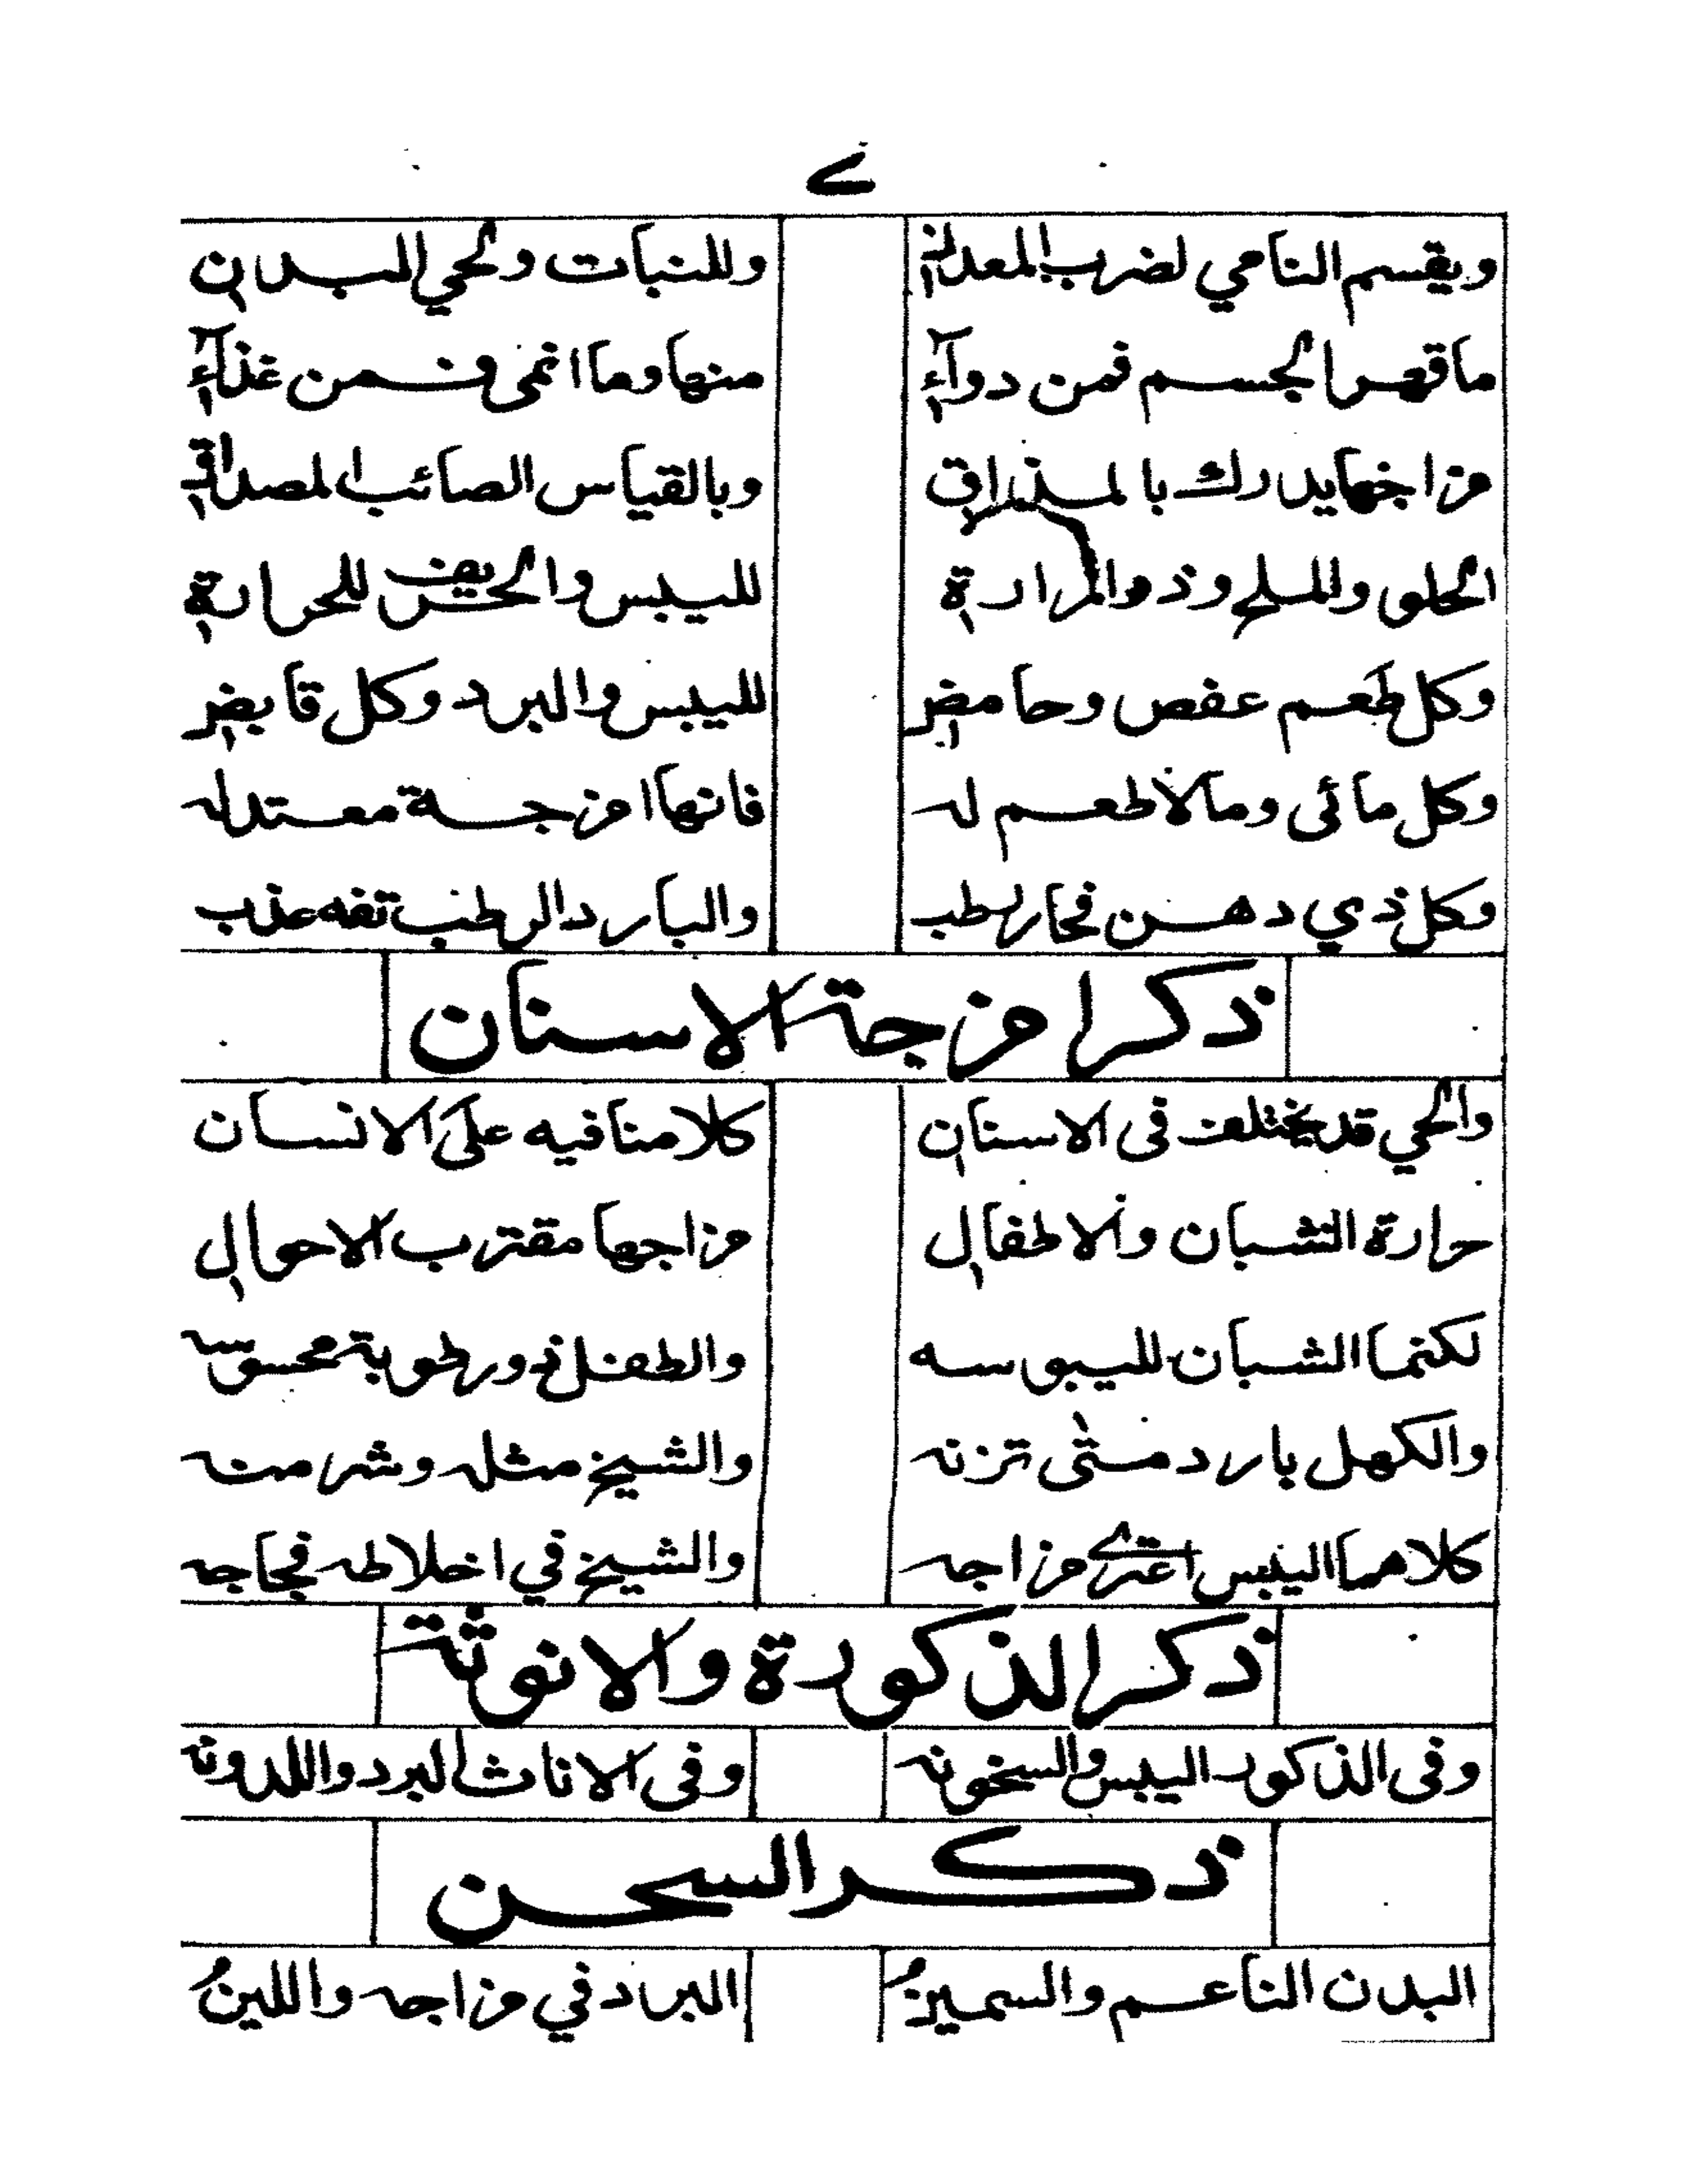 ے
ويقسم النامي لضرب المعدان وللنبات ولحي البدان
ما قهر الجسم فمن دوآءِ منها وما انمى فمن غذآءِ
مزاجها يدرك بالمذاق وبالقياس الصائب المصداق
الحلو والملح وذو المرارة لليبس والحريف للحرارة
وكل طعم عفص وحامض لليبس والبرد وكل قابض
وكل مائى وما لا طعم له فانها امزجة معتدله
وكل ذي دهن فحار رطب والبارد الرطب تفه عذب
ذكر امزجة الاسنان
والحي قد يختلف فى الاسنان كلامنا فيه على الانسان
حرارة الشبان والاطفال مزاجها مقترب الاحوال
لكنما الشبان لليبوسه والطفل ذو رطوبة محسوسه
والكهل بارد متى تزنه والشيخ مثله وشر منه
كلاهما اليبس اعترے مزاجه والشيخ في اخلاطه فجاجه
ذكر الذكورة والانوثة
وفى الذكور اليبس والسخونه وفى الاناث البرد واللدونه
ذكر السحن
البدن الناعم والسمينُ البراد في مزاجه واللينُ